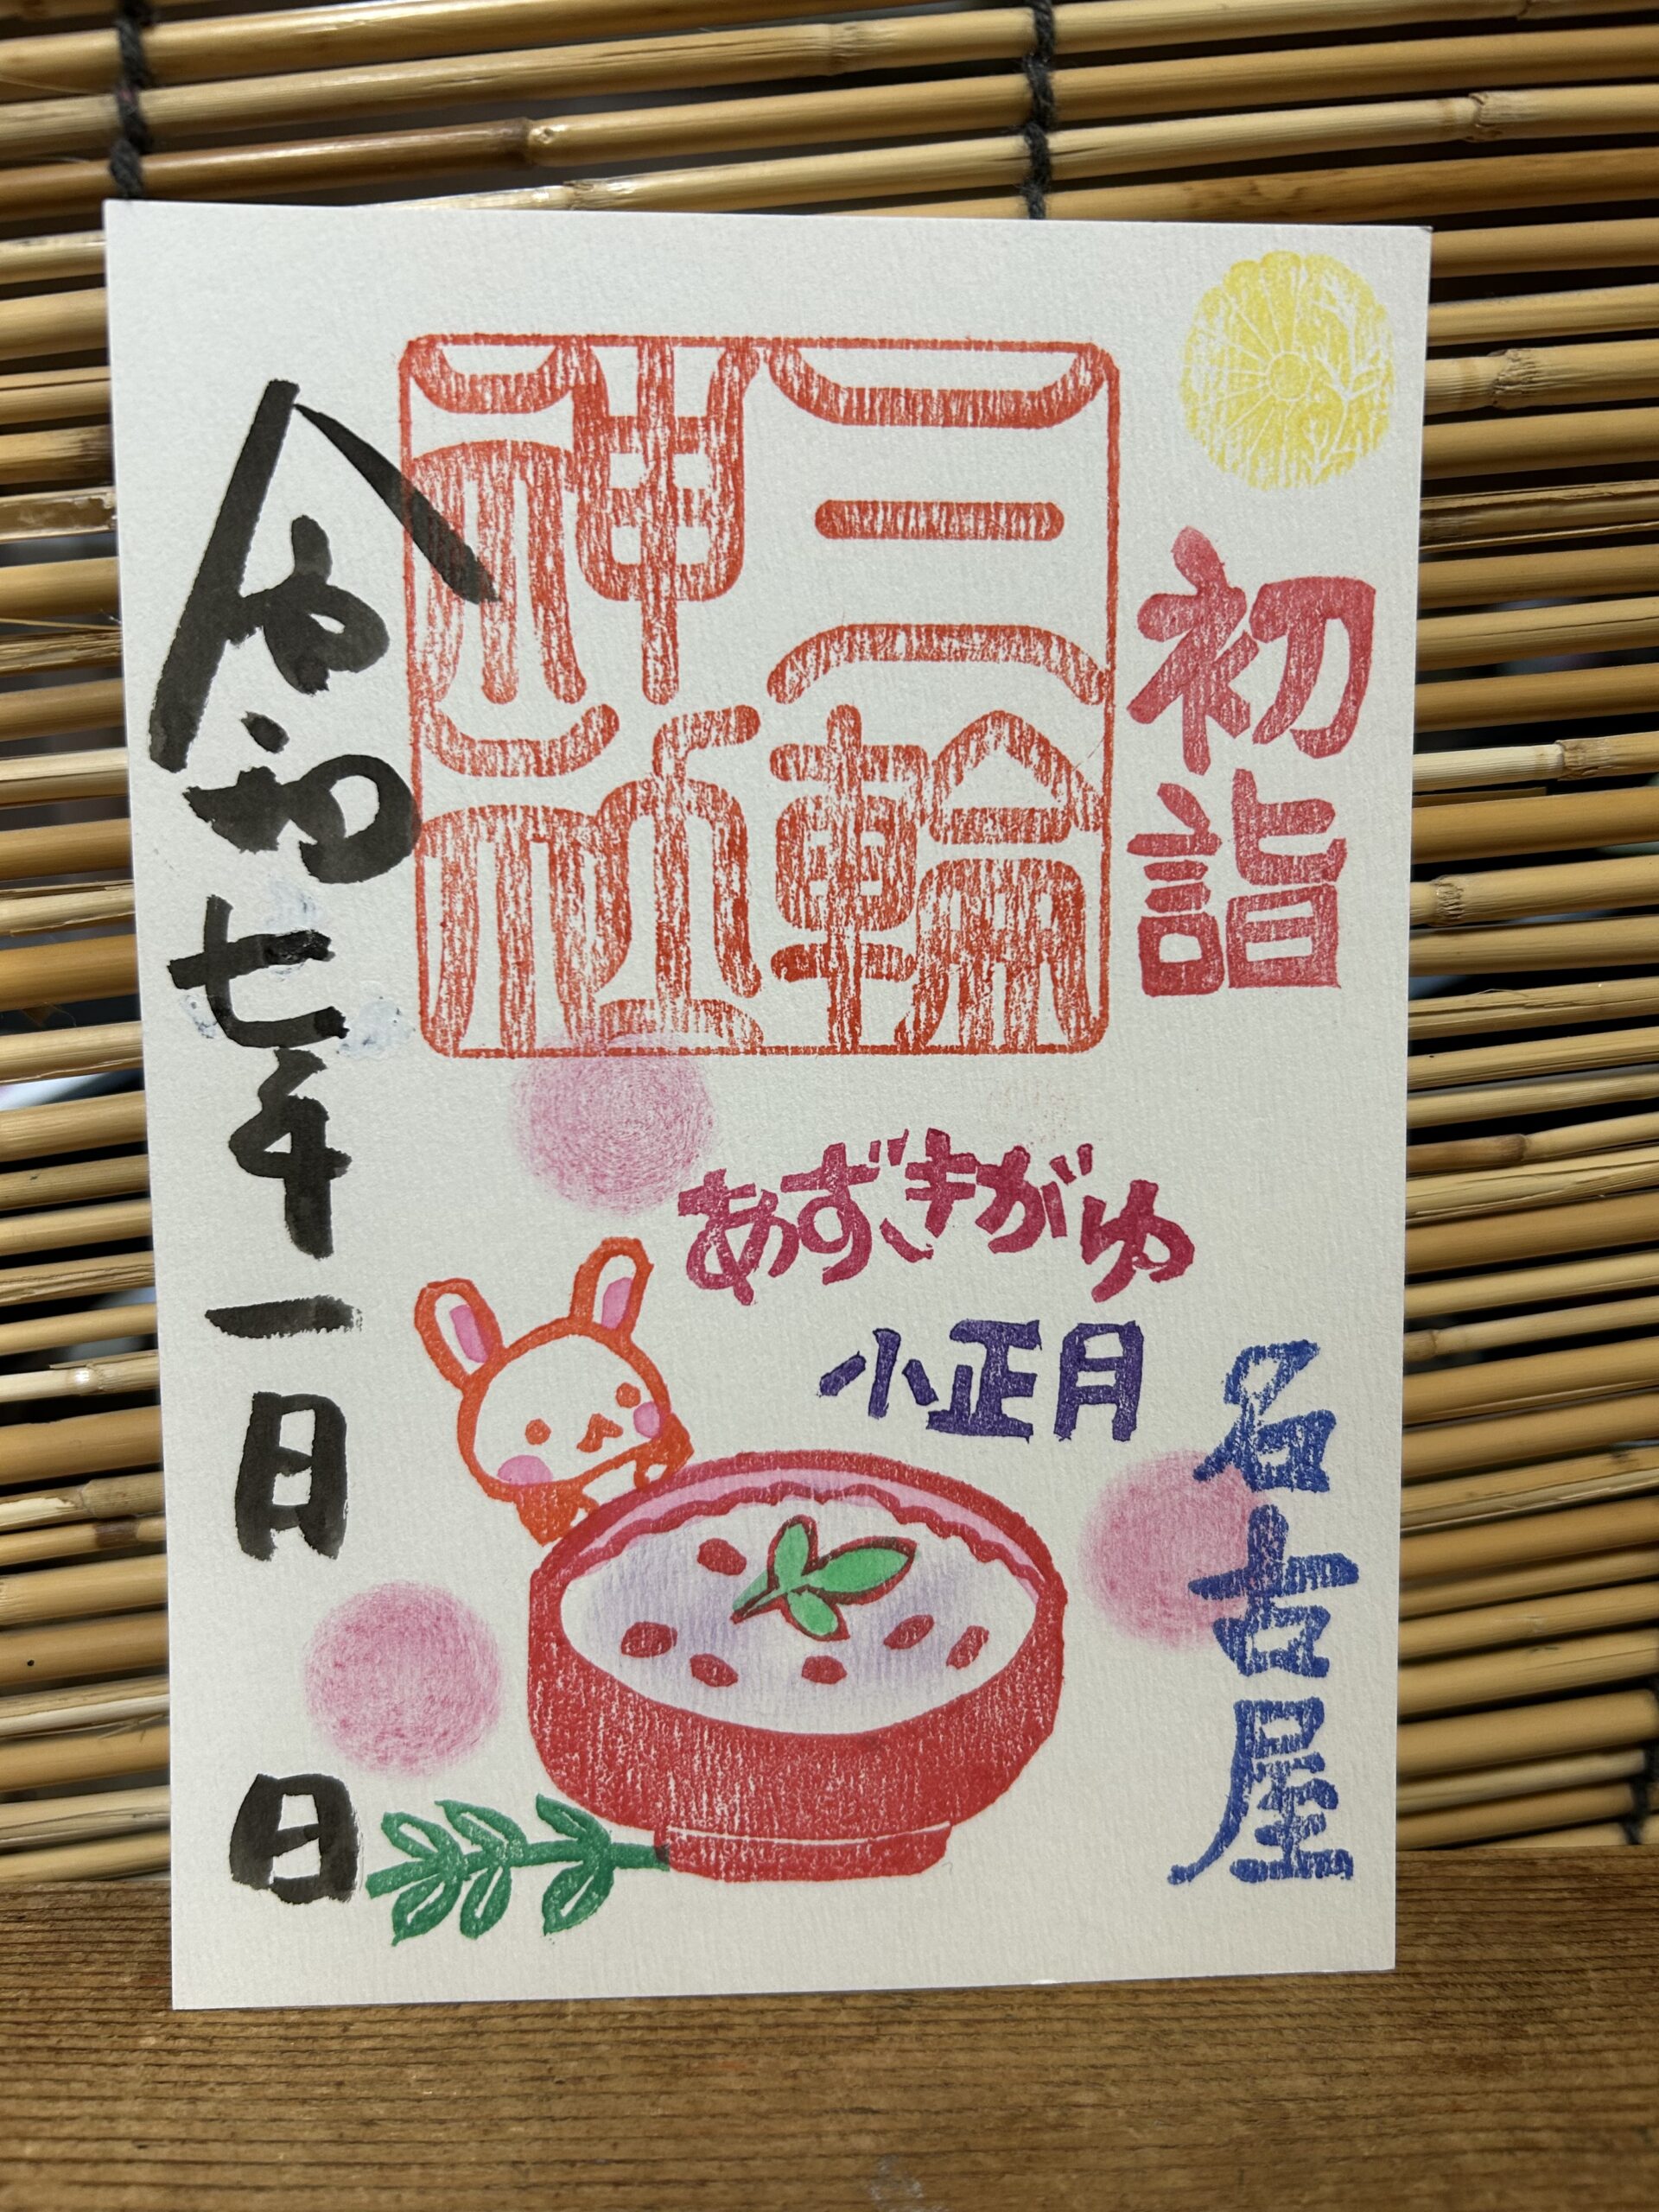 初詣
名古屋
三輪
神社
あずきがゆ
小正月
令和七年一月 日